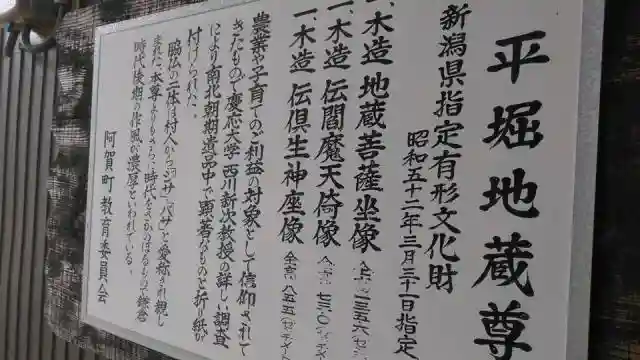 平堀地蔵尊
新潟県指定有形文化財
昭和五十二年三月三十一日指定
一、木造 地蔵菩薩坐像
一、木造 伝閻魔天倚像
一、木造 伝倶生神座像 全高 八五五
農業や子育てのご利益の対象として信仰されて
きたもので慶応大学 西川新次教授の詳しい調査
により南北朝期遺品中で顕著なものと折り紙が
付けられた。
脇仏の二体は村人から「ジサ」「バサ」と愛称され親し
まれた。本尊よりもさらに時代をさかのぼるもので鎌倉
時代後期の作風が濃厚といわれている。
阿賀町教育委員会